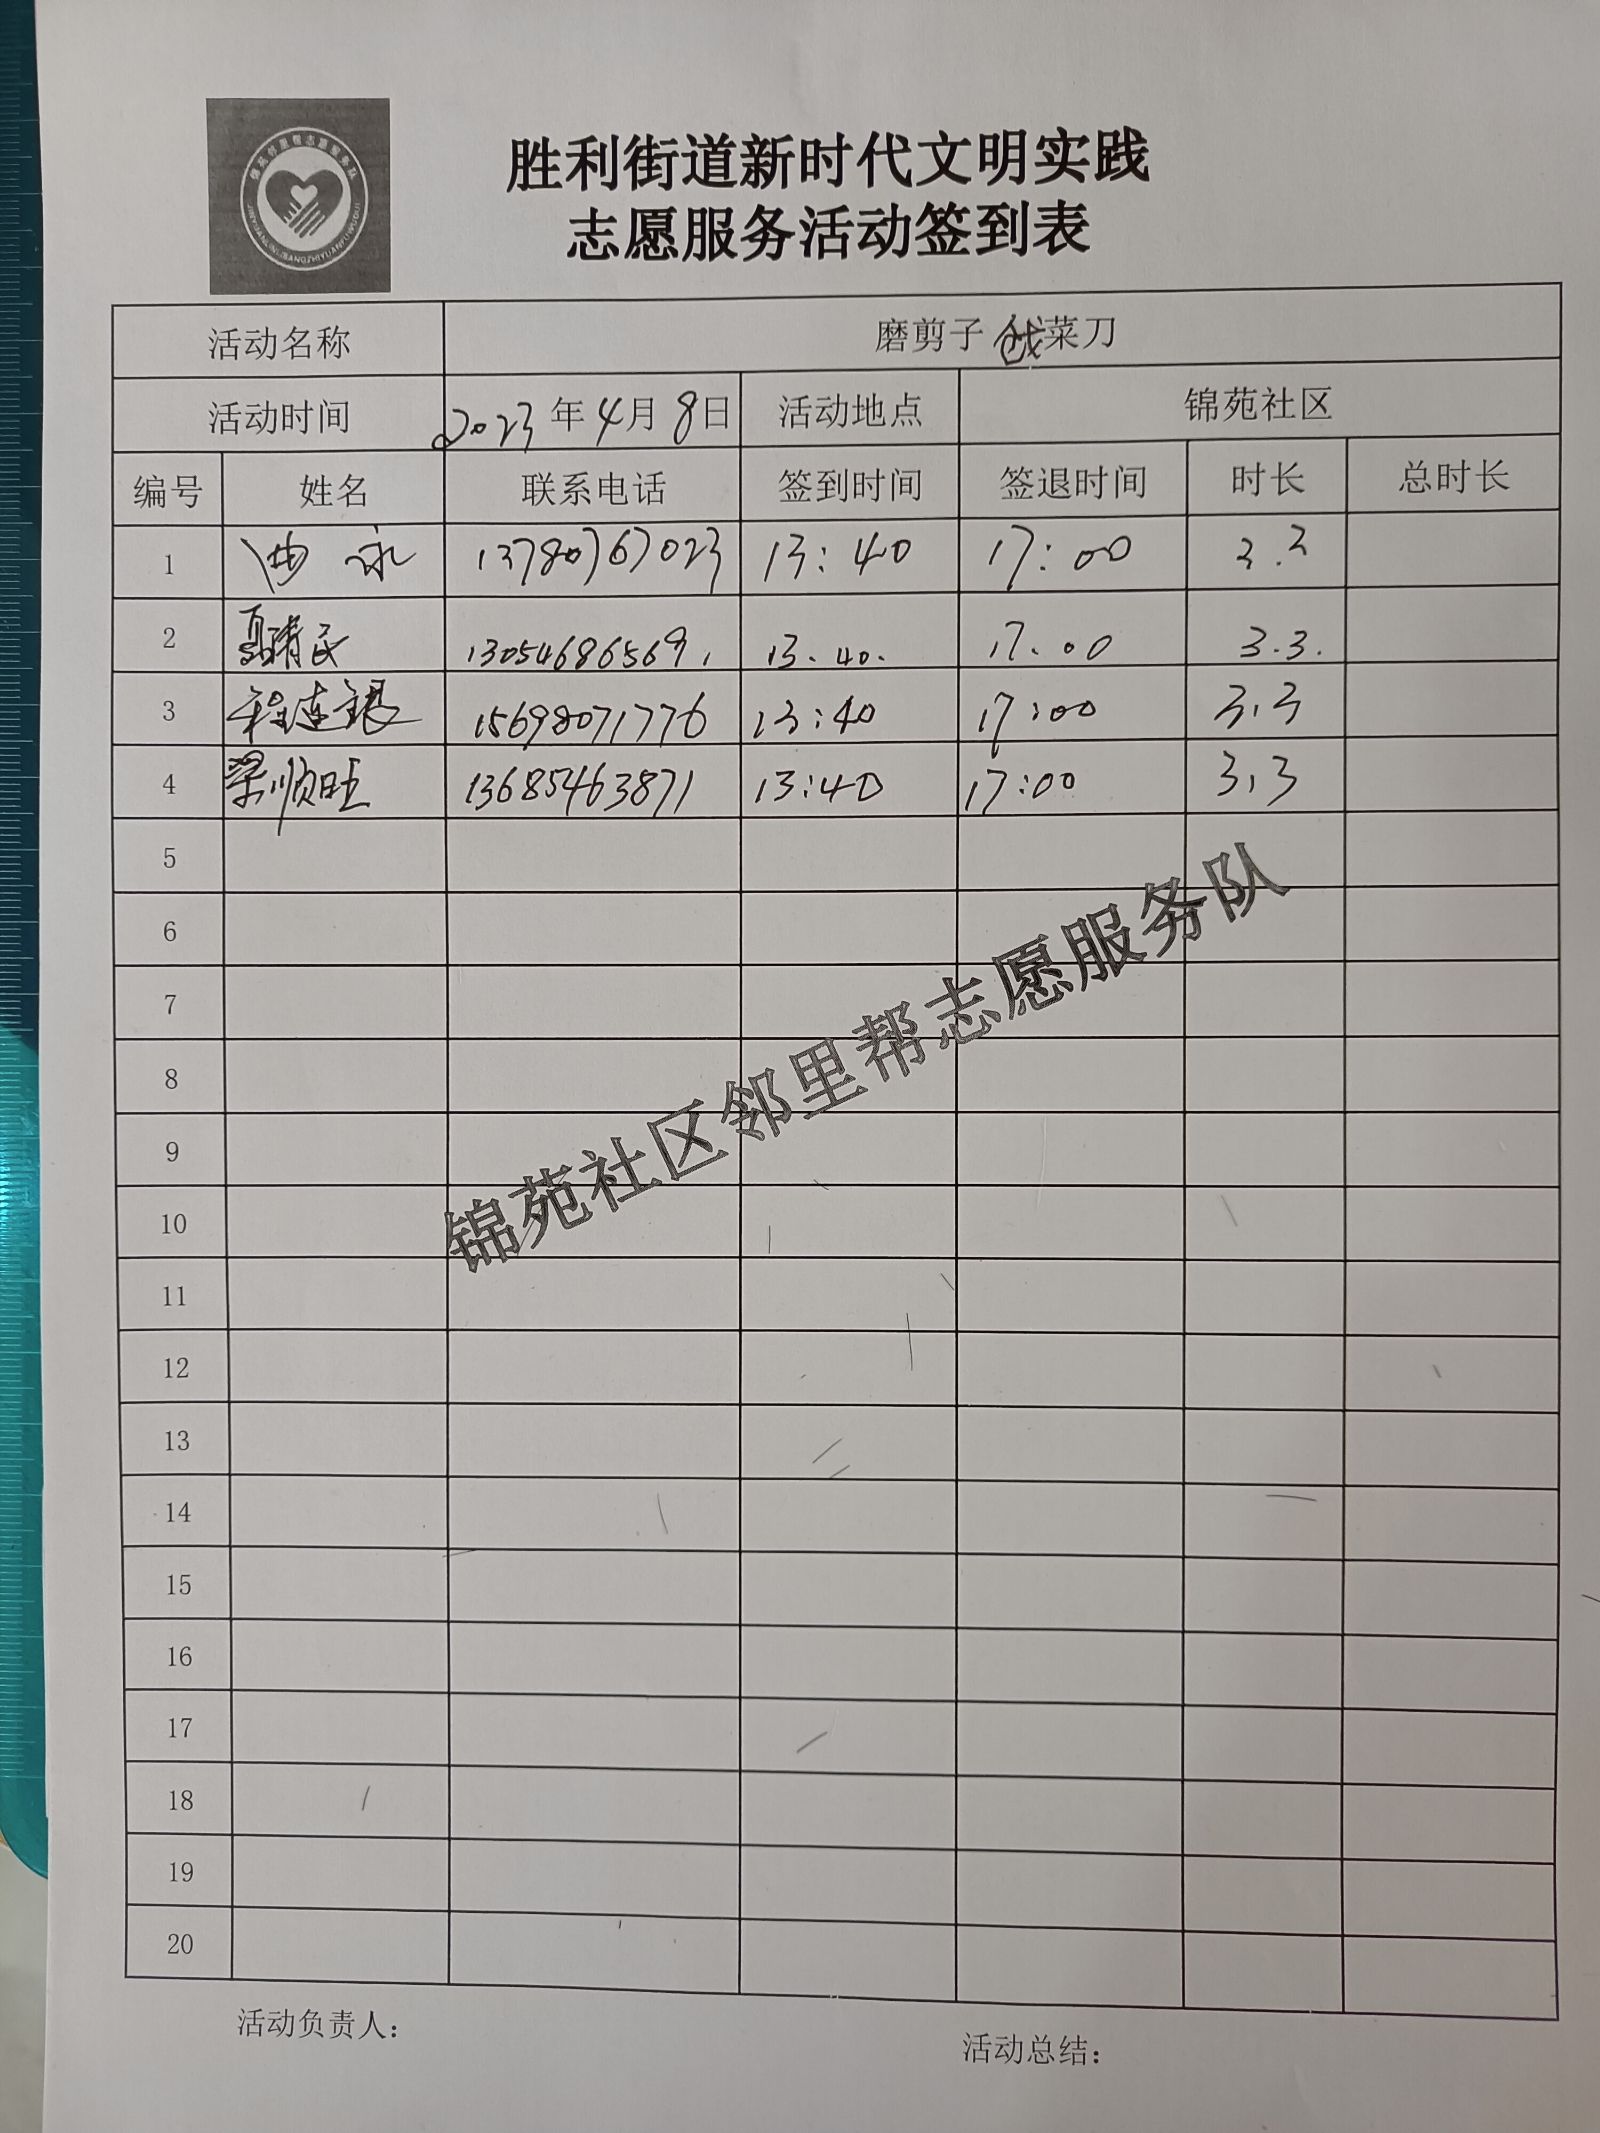 锦苑邻里帮志愿服务队
JINYUANLINLIBANGZHIYUANFUWUDUI
胜利街道新时代文明实践
志愿服务活动签到表
活动名称 磨剪子 戗菜刀
活动时间 2023年4月8日 活动地点 锦苑社区
编号 姓名 联系电话 签到时间 签退时间 时长 总时长
1 曲咏 13780767023 13:40 17:00 3.3
2 13054686569. 13.40. 17.00 3.3.
3 程连银 15698071776 13:40 17:00 3.3
4 梁顺旺 13685463871 13:40 17:00 3.3
5
6
7
8
9
10
11
12
13
14
15
16
17
18
19
20
锦苑社区邻里帮志愿服务队
活动负责人:
活动总结: